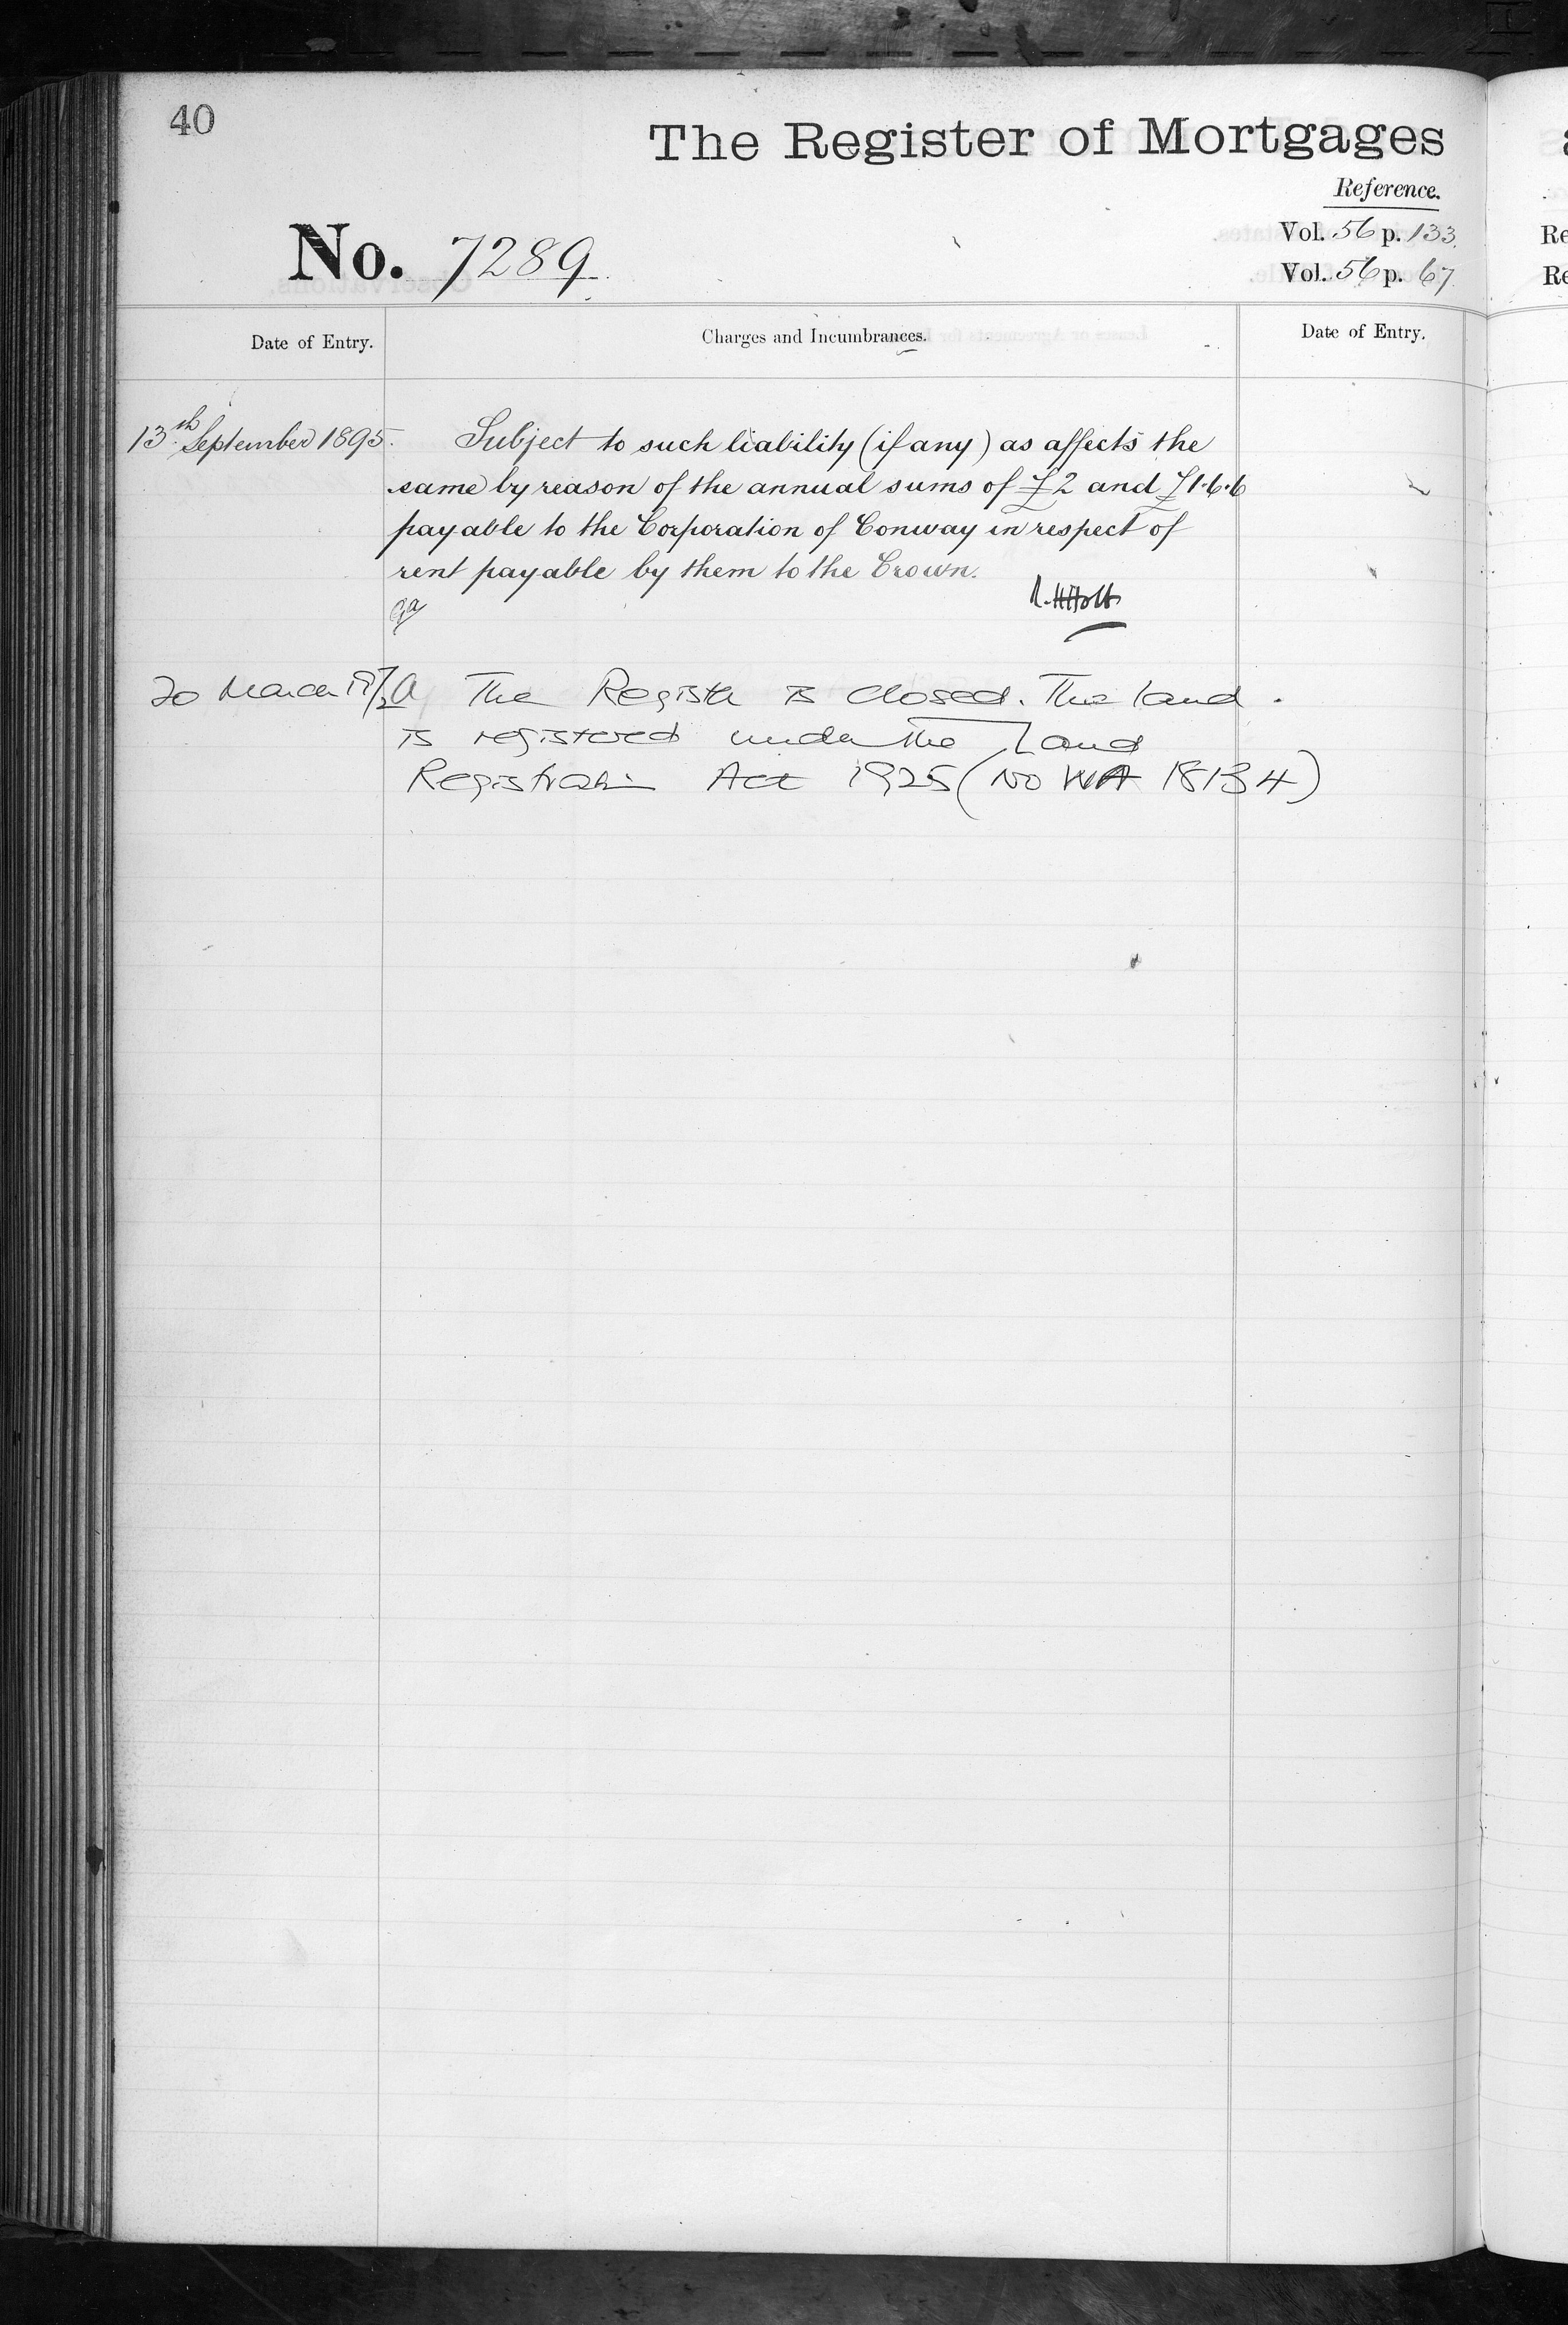 40
The Register of Mortgages
Reference.
No. 7289.
Vol. 56 p. 133.
Vol. 56 p. 67
Date of Entry.
Charges and Incumbrances.
Date of Entry.
13th September 1895.
Subject to such liability (if any) as affects the
same by reason of the annual sums of £2 and £1.6.6
payable to the Corporation of Conway in respect of
rent payable by them to the Crown.
20 March
The Register is closed. The land
is registered under the Land
Registration Act 1925 (No WA 18134)
Re
Re